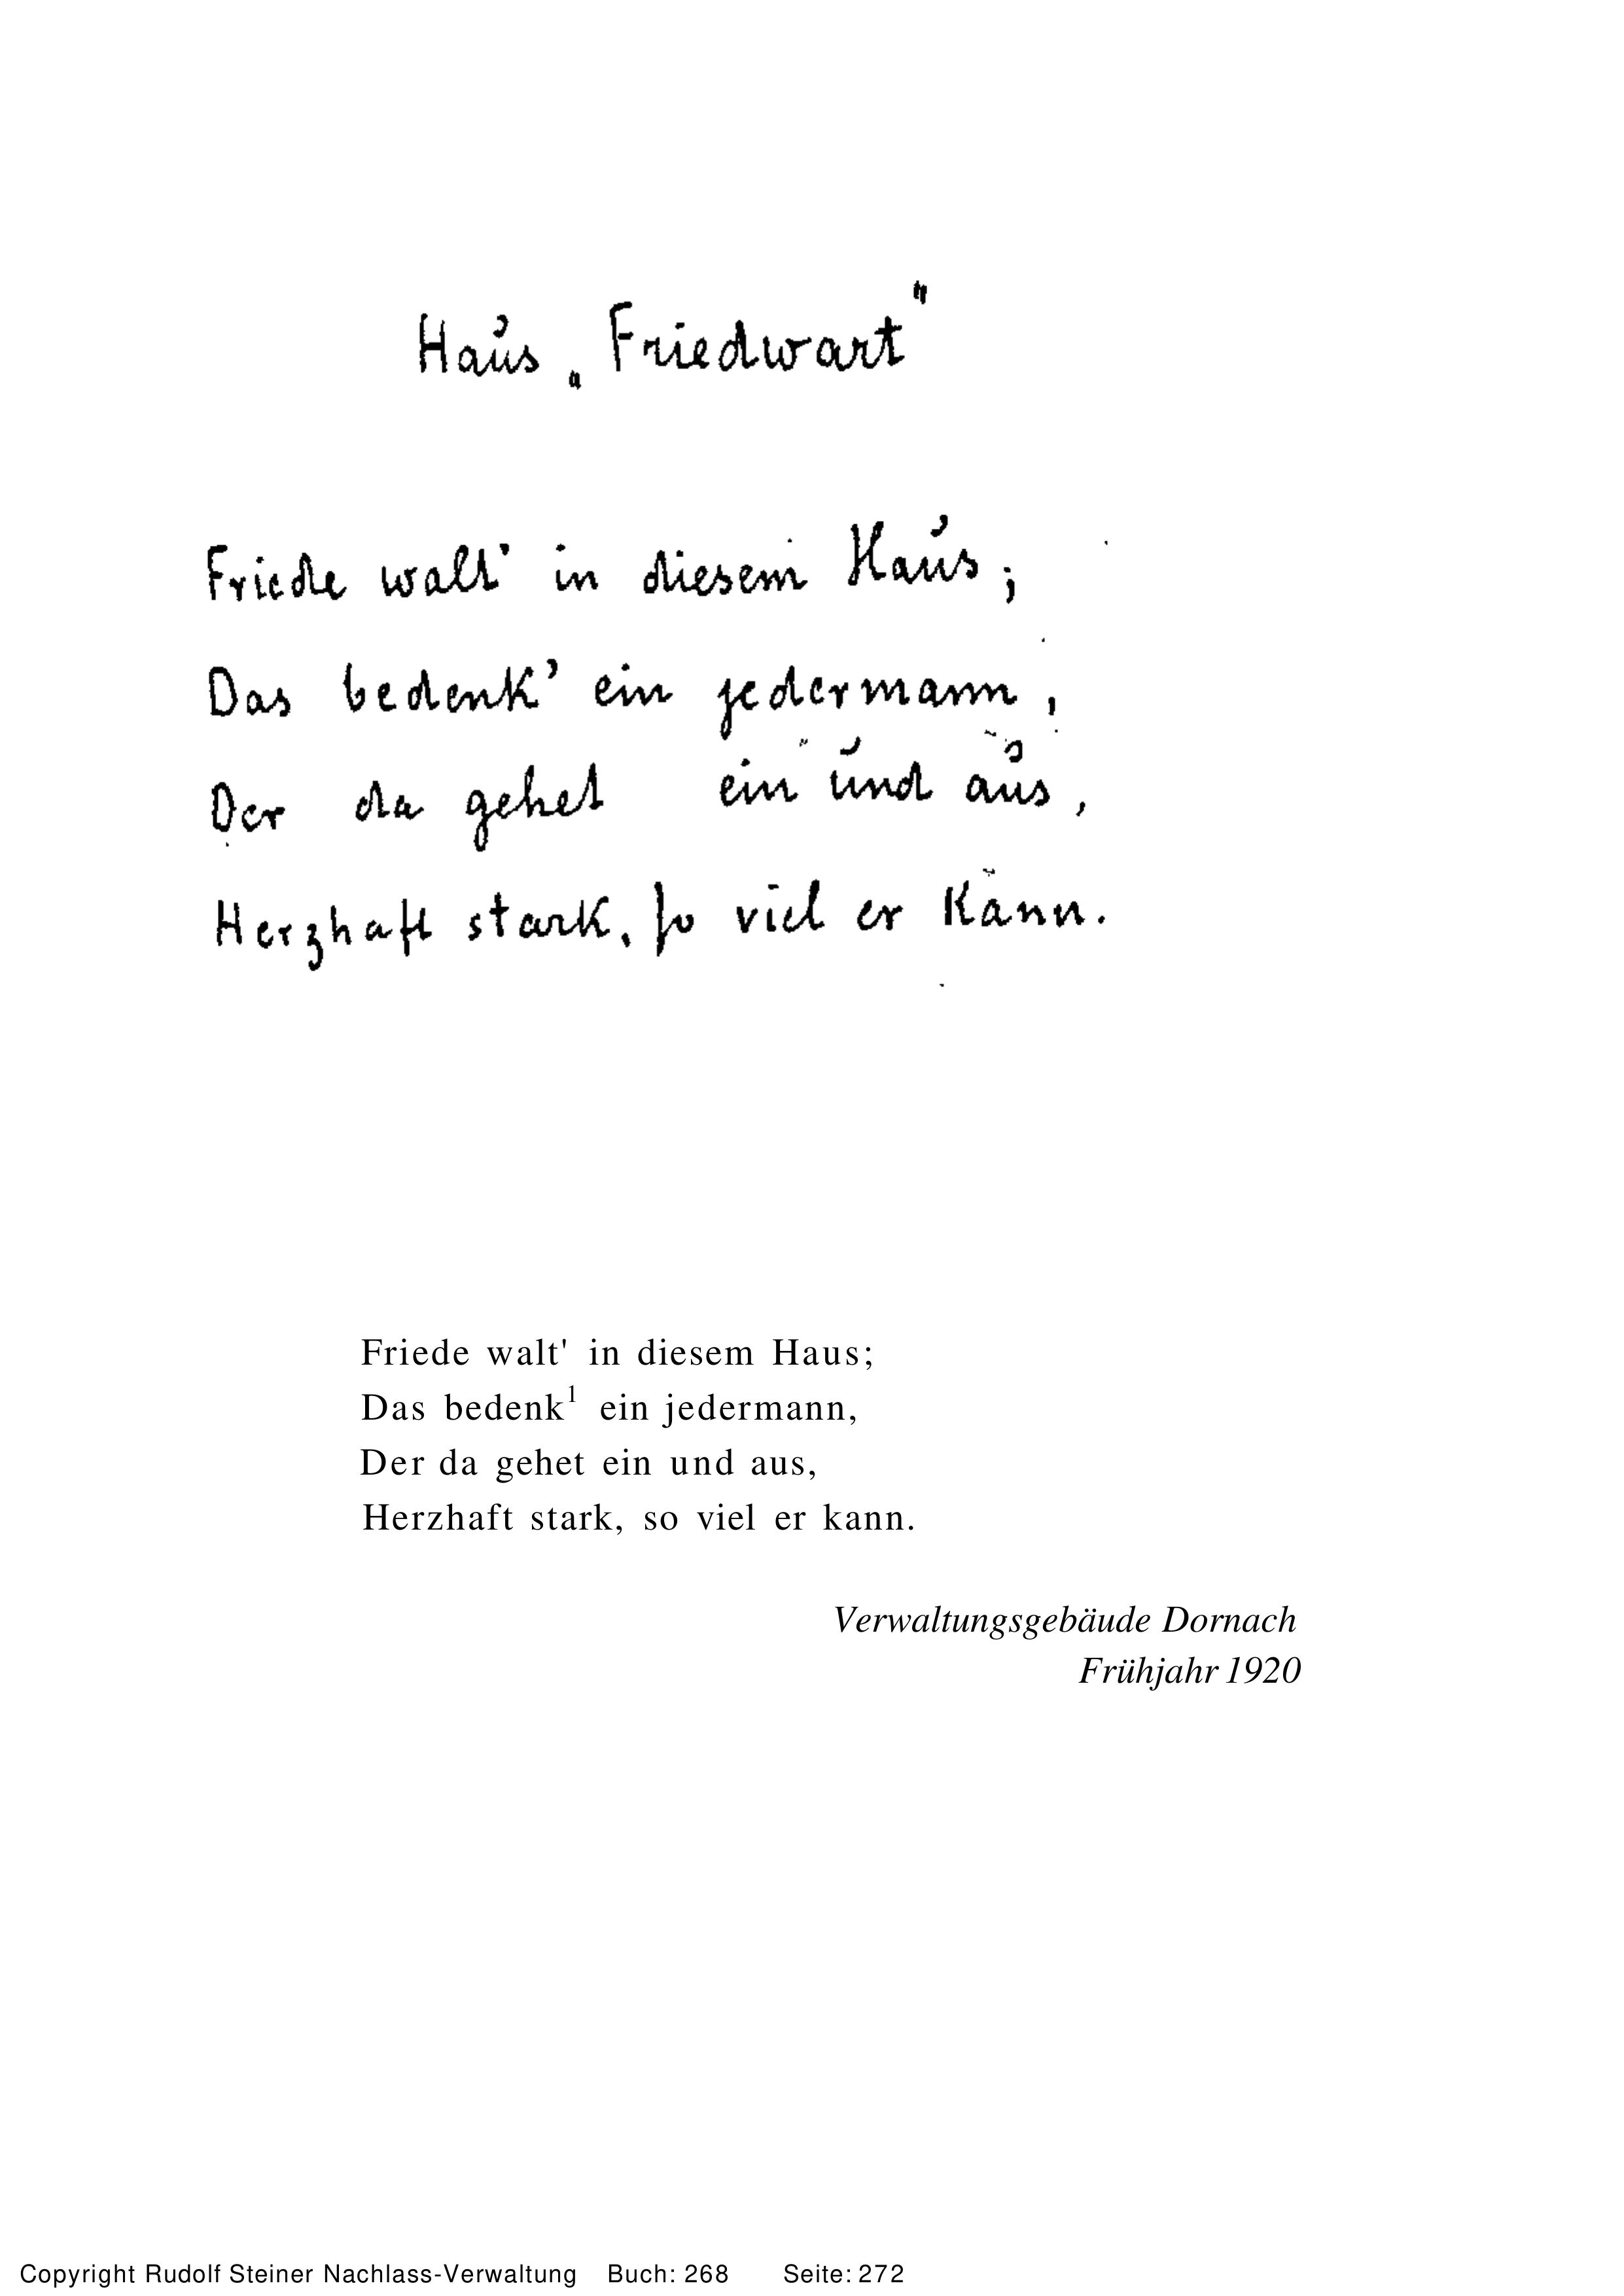 Haus „Friedwart"
Friede walt' in diesem Haus;
Das bedenk' ein jedermann,
Der da gehet ein und aus,
Herzhaft stark, so viel er kann.
Friede walt' in diesem Haus;
Das bedenk¹ ein jedermann,
Der da gehet ein und aus,
Herzhaft stark, so viel er kann.
Verwaltungsgebäude Dornach
Frühjahr 1920
Copyright Rudolf Steiner Nachlass-Verwaltung Buch: 268 Seite: 272